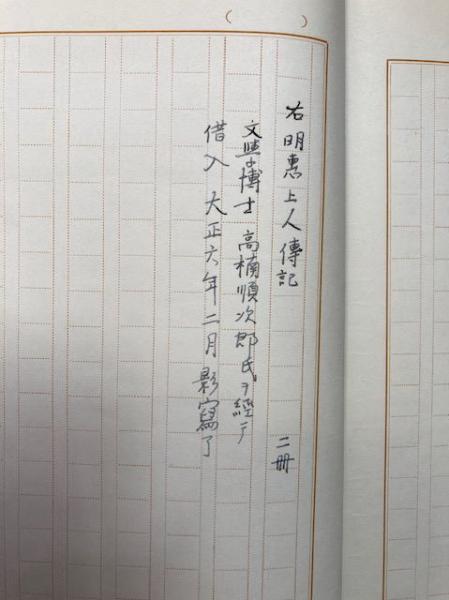 右明惠上人傳記　二冊
文學博士高楠順次郎氏ヲ經テ
借入大正六年二月影寫了